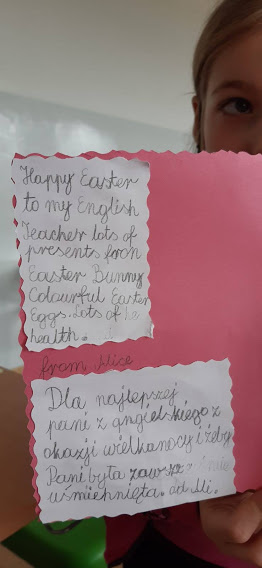 Happy Easter
to my English
Teacher lots of
presents from
Easter Bunny
Colourful Easter
Eggs. Lots of
health.
from Alice
Dla najlepszej
pani z angielskiego z
okazji wielkanocy i żeby
Pani była zawsze
uśmiechnięta. od Ali.